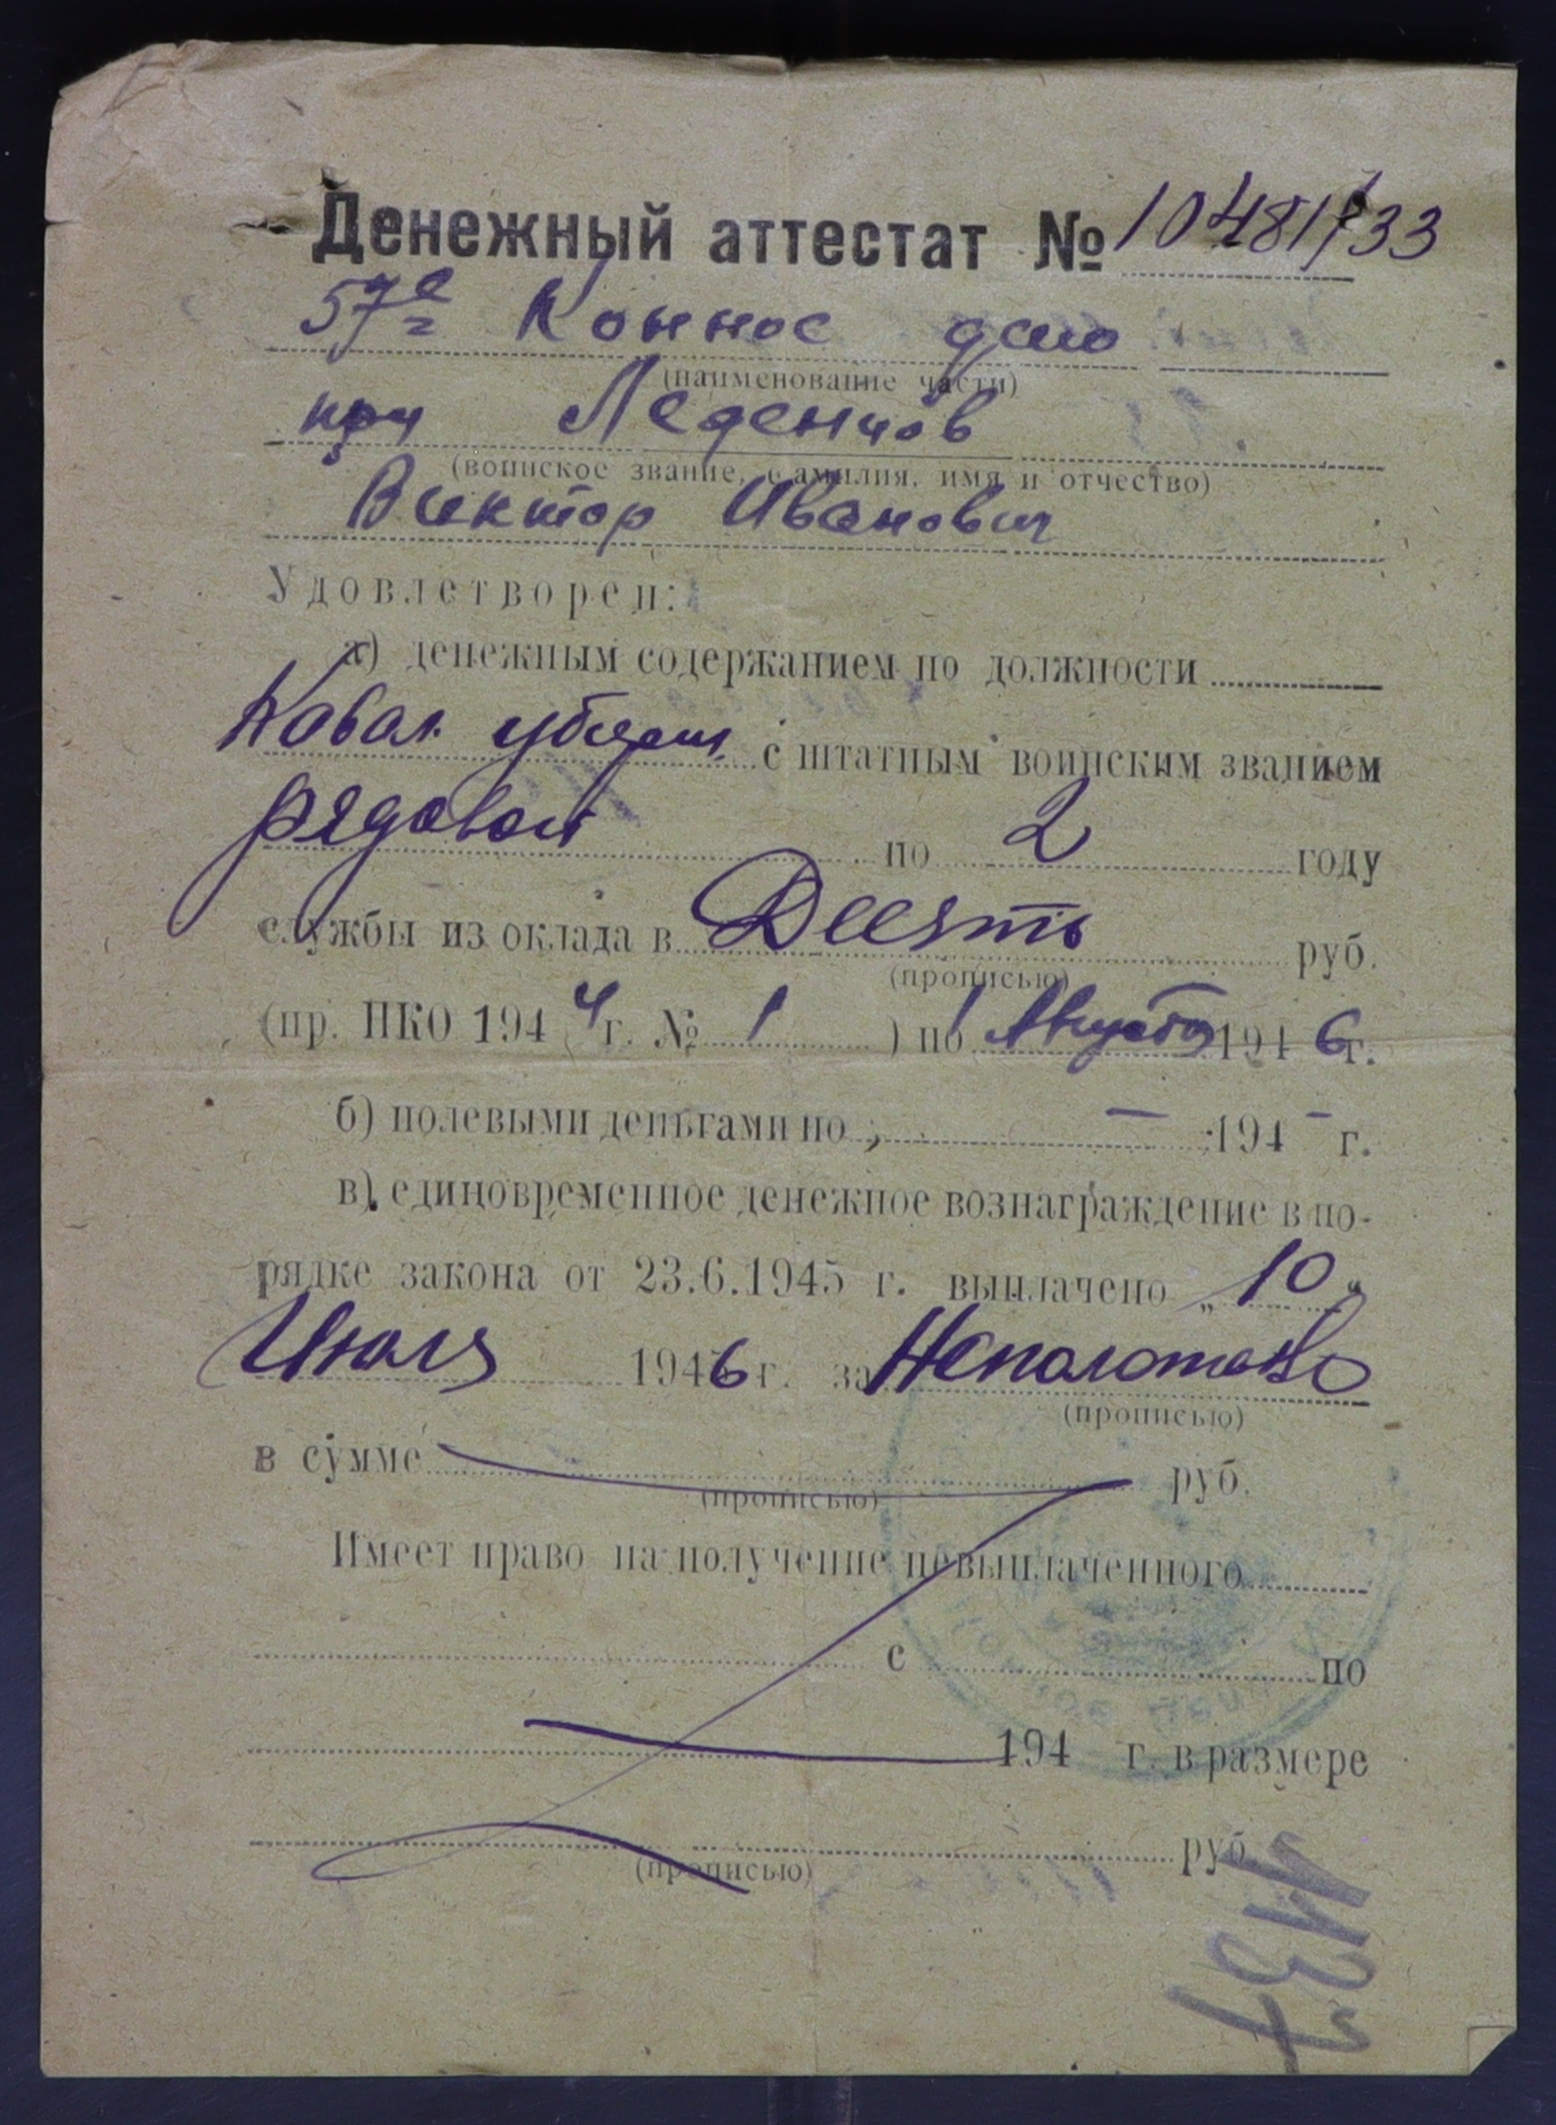 Денежный аттестат № 10481/33
57е Конное депо
(наименование части)
кр-ц Леденцов
(воинское звание, фамилия, имя и отчество)
Виктор Иванович
Удовлетворен:
а) денежным содержанием по должности
с штатным воинским званием
рядовой по 2 году
службы из оклада в Десять руб.
(прописью)
(пр. НКО 1944 г. № 1 ) по 1 Августа 1946 г.
б) полевыми деньгами по — 194 – г.
в) единовременное денежное вознаграждение в по-
рядке закона от 23.6.1945 г. выплачено „10“
Июля 1946 г. за
(прописью)
в сумме руб.
(прописью)
Имеет право на получение невыплаченного
с по
194 г. в размере
руб.
(прописью)